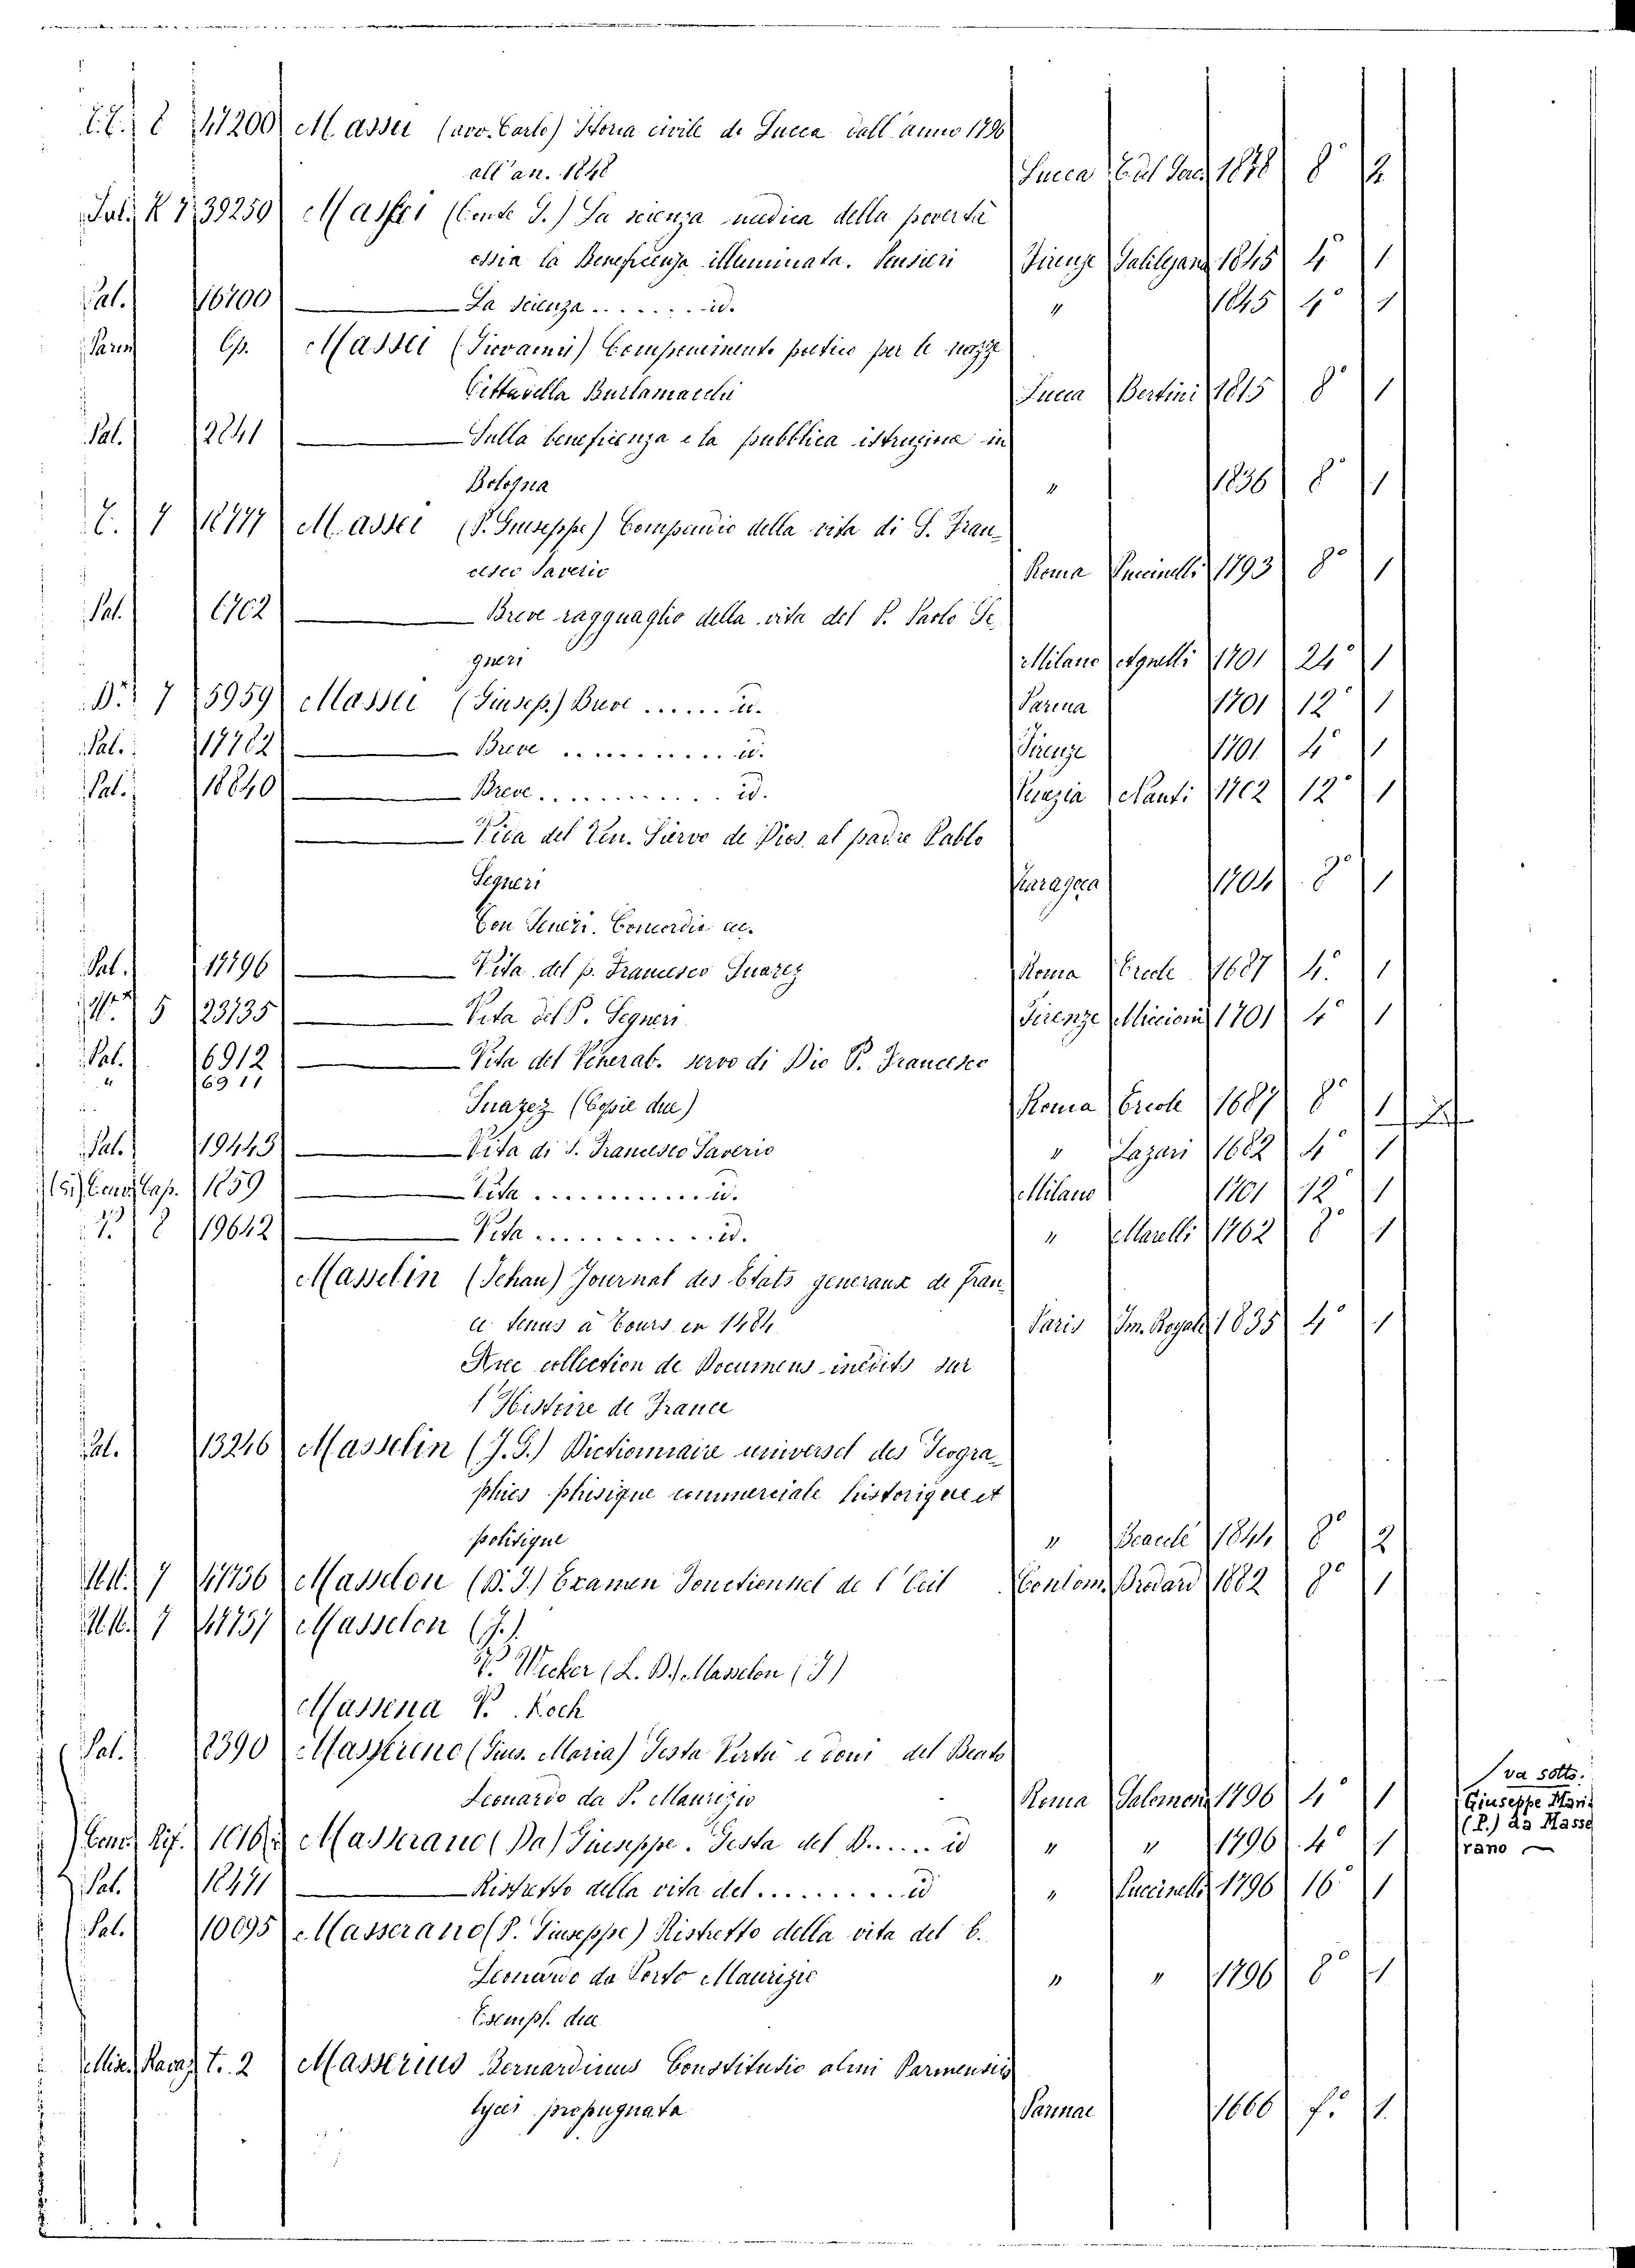 E.E. 8 47200 Massei (avv. Carlo) Storia civile di Lucca dall'anno 1796
all'an. 1848 Lucca 1878 8° 2
39250 Massei (Conte G.) La scienza medica della povertà
ossia la Beneficenza illuminata. Pensieri Firenze Galileyana 1845 4° 1
Pal. 16700 La scienza....... id. " 1845 4° 1
Op. Massei (Giovanni) Componimento poetico per le nozze
Cittadella Burlamacchi Lucca Bertini 1815 8° 1
Pal. 2841 Sulla beneficenza e la pubblica istruzione in
Bologna " 1836 8° 1
7 18777 Massei (P. Giuseppe) Compendio della vita di S. Fran-
cesco Saverio Roma Puccinelli 1793 8° 1
Pal. 6702 Breve ragguaglio della vita del P. Paolo Se
gneri Milano Agnelli 1701 24° 1
7 5959 Massei (Giusep.) Breve ...... id. Parma 1701 12° 1
Pal. 17782 Breve ........... id. Firenze 1701 4° 1
Pal. 18840 Breve ............ id. Venezia Nanti 1702 12° 1
Vida del Ven. Siervo de Dios. al padre Pablo
Segneri Zaragoza 1704 8° 1
Con Seneri. Concordia ec.
Pal. 17796 Vita del p. Francesco Suarez Roma Ercole 1687 4° 1
5 23735 Vita del P. Segneri Firenze Miccioni 1701 4° 1
Pal. 6912 Vita del Venerab. servo di Dio P. Francesco
" 6911
Suazez (Copie due) Roma Ercole 1687 8° 1
Pal. 19443 Vita di S. Francesco Saverio " Lazari 1682 4° 1
Cap. 1859 Vita ............ id. Milano 1701 12° 1
8 19642 Vita ............ id. " Marelli 1762 8° 1
Masselin (Jehan) Journal des Etats generaux de Fran-
ce tenus à Tours en 1484 Paris Im. Royale 1835 4° 1
Avec collection de Documens inédits sur
l'Histoire de France
Pal. 13246 Masselin (J. G.) Dictionnaire universel des Geogra-
phies phisique commerciale historique et
politique " 1844 8° 2
7 47756 Masselon (B. J.) Examen Fonctionnel de l'Oeil Coulom. Brodard 1882 8° 1
7 47757 Masselon (J.)
V. Wecker (L. B.) Masselon (J)
Massena V. Koch
Pal. 2390 Masserano (Gius. Maria) Gesta Virtù e doni del Beato
Leonardo da P. Maurizio Roma Salomoni 1796 4° 1
va sotto.
Giuseppe Mari
(P.) da Masse
rano
Conv. Rif. Masserano (Da) Giuseppe. Gesta del B...... id " " 1796 4° 1
Pal. 18471 Ristretto della vita del......... id " Puccinelli 1796 16° 1
Pal. 10095 Masserano (P. Giuseppe) Ristretto della vita del B.
Leonardo da Porto Maurizio " " 1796 8° 1
Esempl. due
Misc. Ravaz t. 2 Masserius Bernardinus Constitutio almi Parmensis
lycei propugnata Parmae 1666 f.° 1